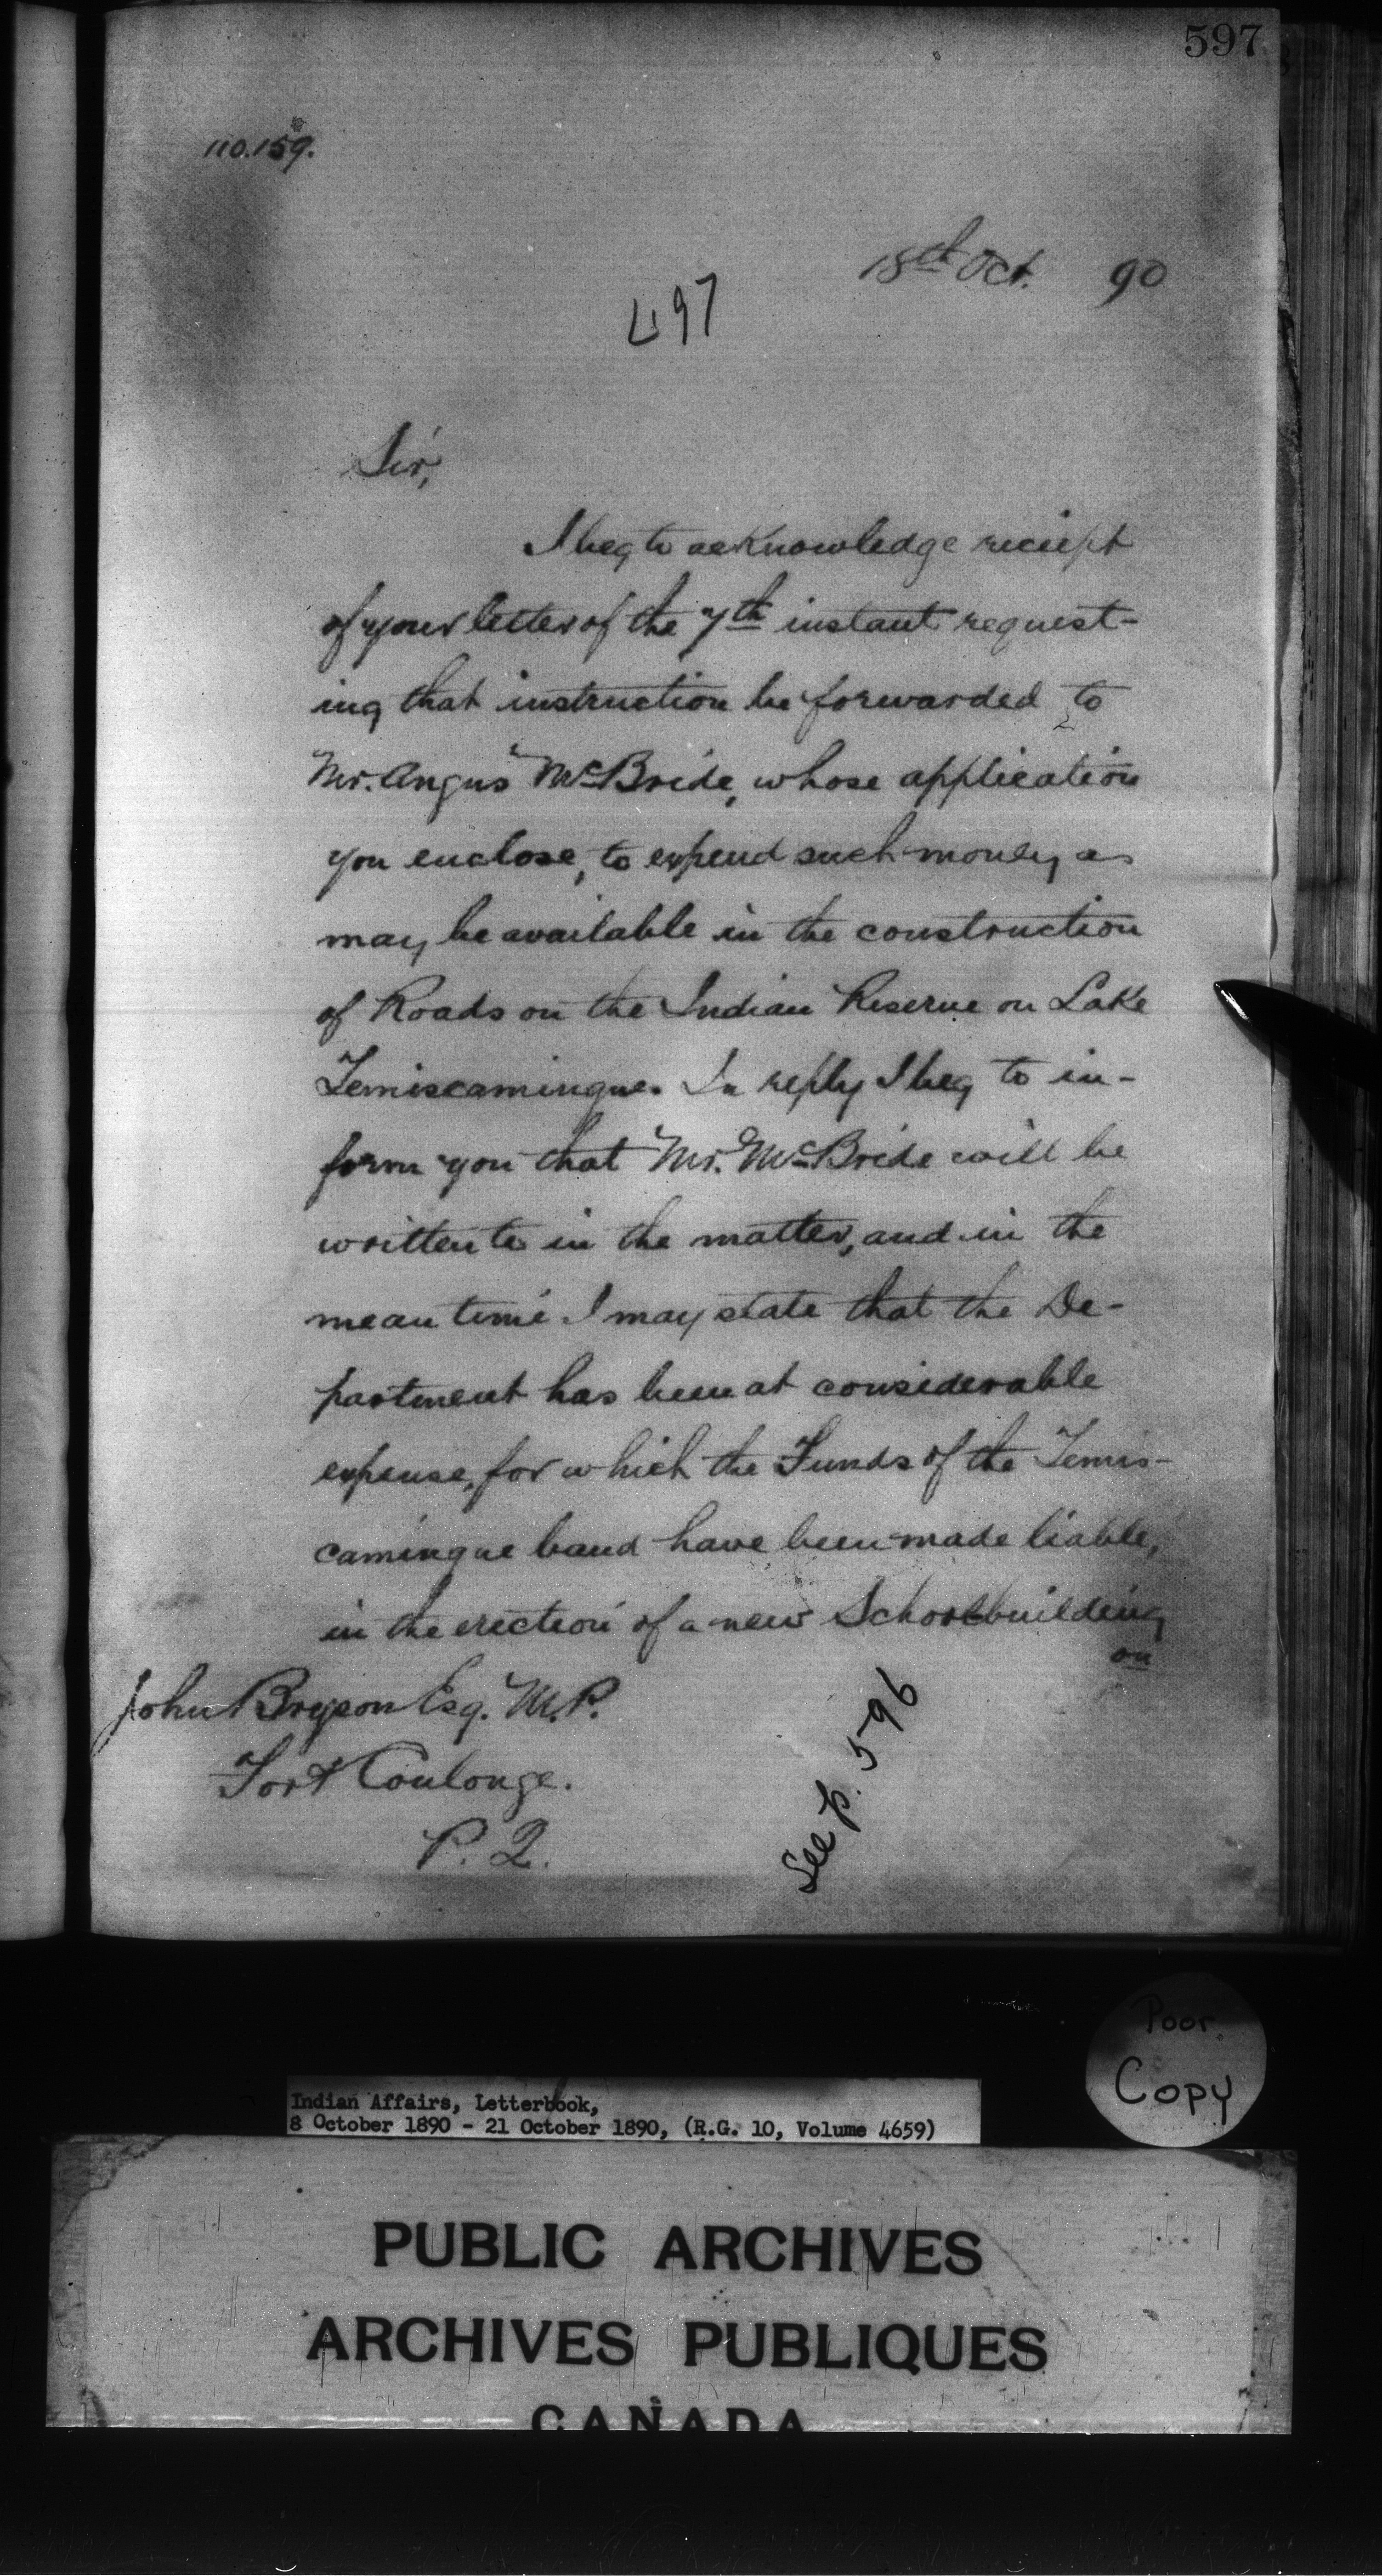 597
110.159.
18th Oct. 90
497
Sir,
I beg to acknowledge reciept
of your letter of the 7th instant request-
ing that instruction be forwarded to
Mr. Angus McBride, whose application
you enclose, to expend such money as
may be available in the construction
of Roads on the Indian Reserve on Lake
Temiscamingue. In reply I beg to in-
form you that Mr. McBride will be
written to in the matter, and in the
mean time I may state that the De-
partment has been at considerable
expense, for which the Funds of the Temis-
camingue band have been made liable,
in the erection of a new Schoolbuilding
on
John Bryson Esq. M.P.
Fort Coulonge.
P. Q.
See p. 596
Poor
Copy
Indian Affairs, Letterbook,
8 October 1890 - 21 October 1890, (R.G. 10, Volume 4659)
PUBLIC ARCHIVES
ARCHIVES PUBLIQUES
CANADA